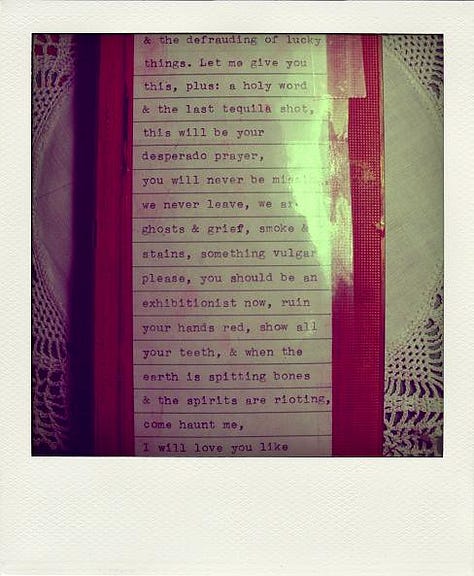 & the defrauding of lucky
things. Let me give you
this, plus: a holy word
& the last tequila shot,
this will be your
desperado prayer,
you will never be
we never leave, we
ghosts & grief, smoke &
stains, something vulgar
please, you should be an
exhibitionist now, ruin
your hands red, show all
your teeth, & when the
earth is spitting bones
& the spirits are rioting,
come haunt me,
I will love you like